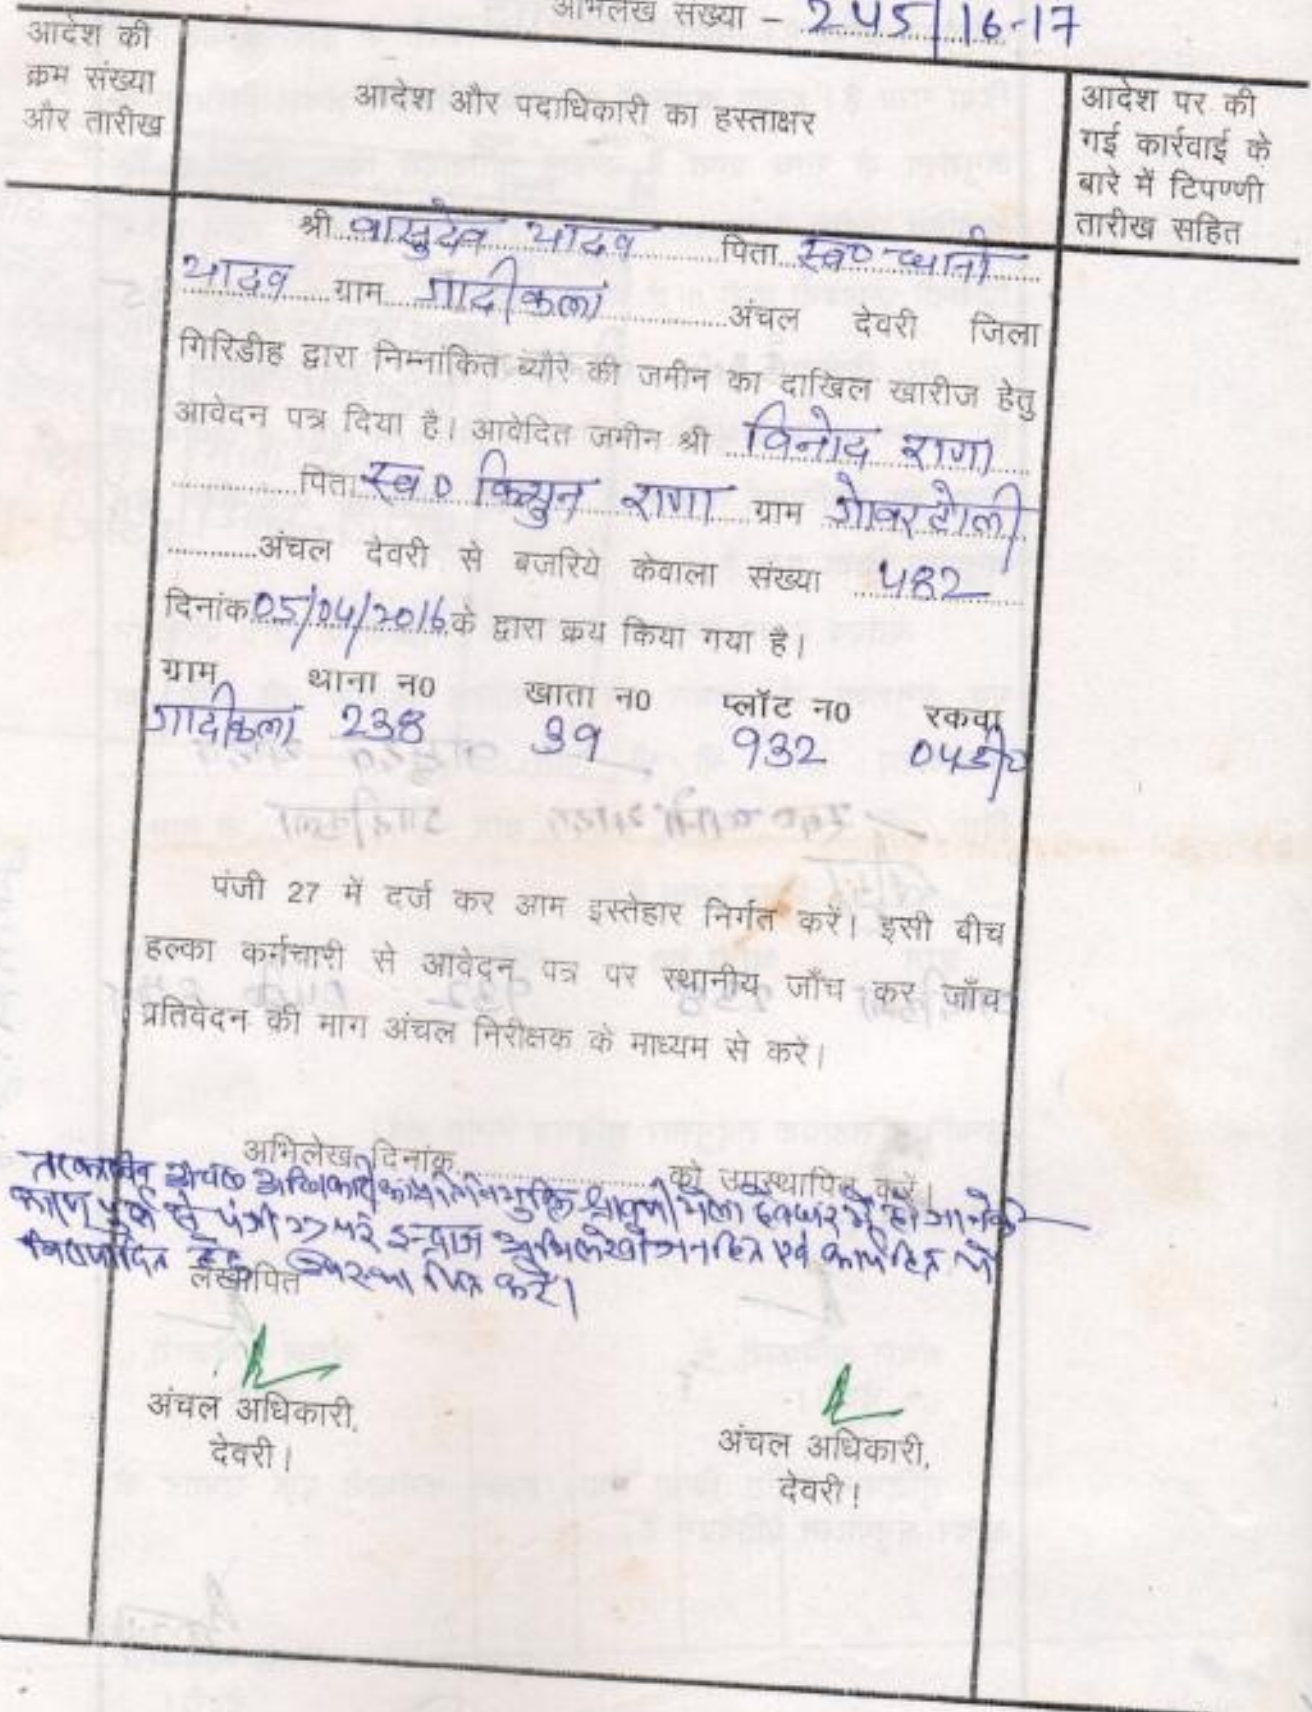 अभिलेख संख्या - 245/16-17
आदेश की
क्रम संख्या
और तारीख
आदेश और पदाधिकारी का हस्ताक्षर
आदेश पर की
गई कार्रवाई के
बारे में टिपण्णी
तारीख सहित
श्री वासुदेव यादव पिता स्व०
यादव ग्राम गादीकला अंचल देवरी जिला
गिरिडीह द्वारा निम्नांकित ब्यौरे की जमीन का दाखिल खारीज हेतु
आवेदन पत्र दिया है। आवेदित जमीन श्री विनोद राणा
पिता स्व० किशुन राणा ग्राम गोवरटोली
अंचल देवरी से बजरिये केवाला संख्या 482
दिनांक 05/04/2016 के द्वारा क्रय किया गया है।
ग्राम थाना न0 खाता न0 प्लॉट न0 रकवा
गादीकला 238 39 932 04डी०
पंजी 27 में दर्ज कर आम इस्तेहार निर्गत करें। इसी बीच
हल्का कर्मचारी से आवेदन पत्र पर स्थानीय जाँच कर जाँच
प्रतिवेदन की माग अंचल निरीक्षक के माध्यम से करें।
अभिलेख दिनांक को उपस्थापित करें।
तत्कालीन अंचल अधिकारी श्रावणी मेला देवघर में हो जाने के
कारण पूर्व से पंजी 27 पर इन्द्राज अभिलेखों जनहित एवं कार्यहित में
करें।
लेखापित
अंचल अधिकारी,
देवरी।
अंचल अधिकारी,
देवरी।